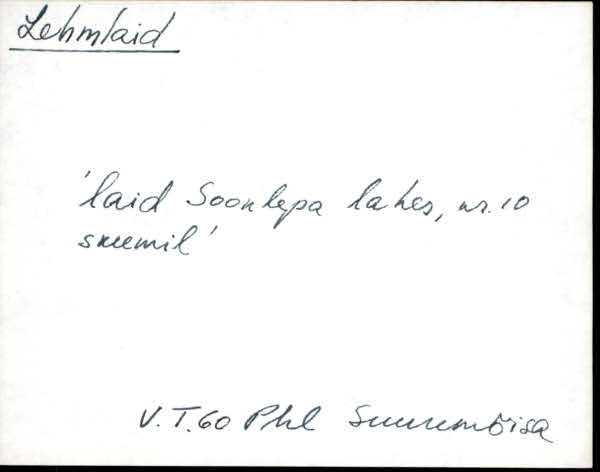 Lehmlaid
'laid Soonlepa lahes, nr. 10
skeemil'
V.T.60 Phl Suuremõisa